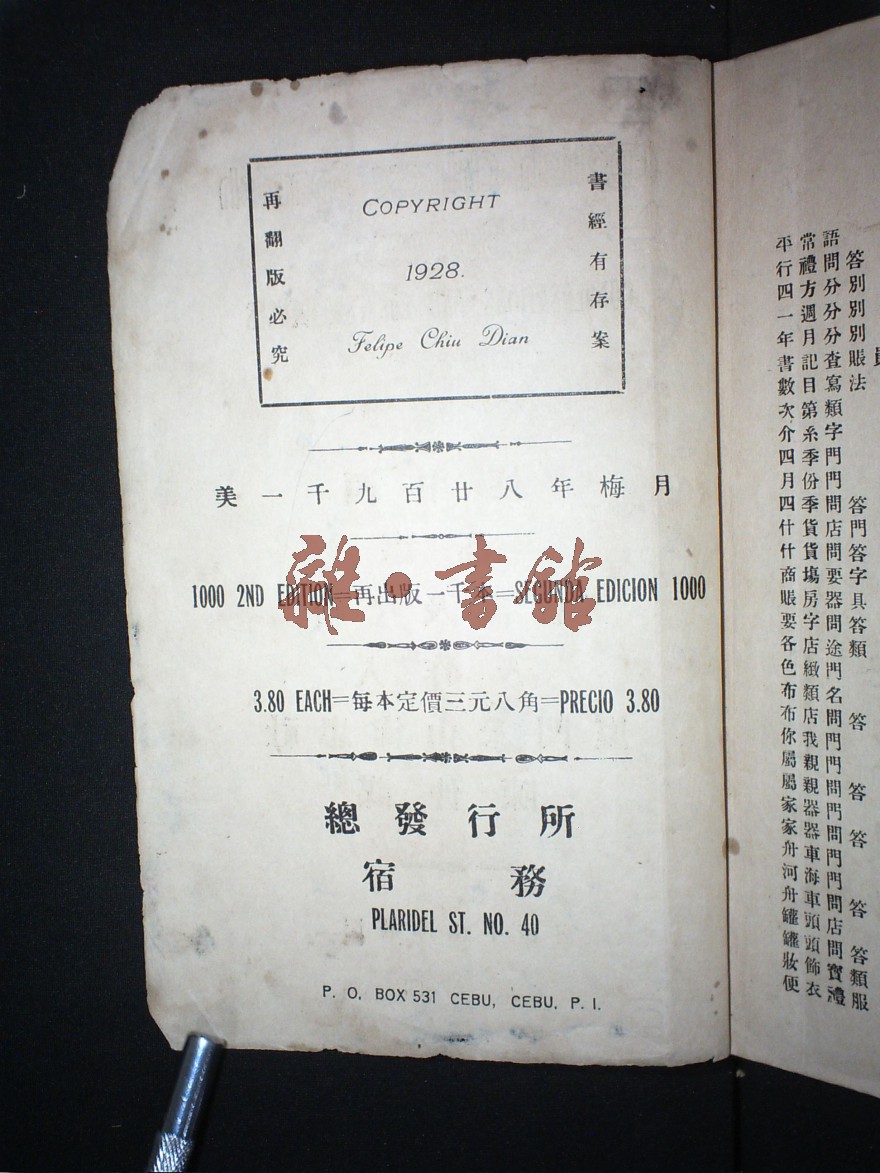 再翻版必究
書經有存案
COPYRIGHT
1928.
Felipe Chiu Dian
美一千九百廿八年梅月
1000 2ND EDITION=再出版一千本=SEGUNDA EDICION 1000
雜·書館
3.80 EACH=每本定價三元八角=PRECIO 3.80
總發行所
宿務
PLARIDEL ST. NO. 40
P. O. BOX 531 CEBU, CEBU, P. I.
平常語
行禮問答
四方分別
一週分別
年月分別
書記查賬員
數目寫法
次第類
介糸字
四季門
月份門
四季問答
什貨店門
什貨問答
商塲要字
賬房器具
要字問答
各店途類
色緻門
布類名
布店問答
你我門
屬親門
屬親問答
家器門
家器問答
舟車門
河海門
舟車問答
罐頭店
罐頭問答
妝飾寶類
便衣禮服